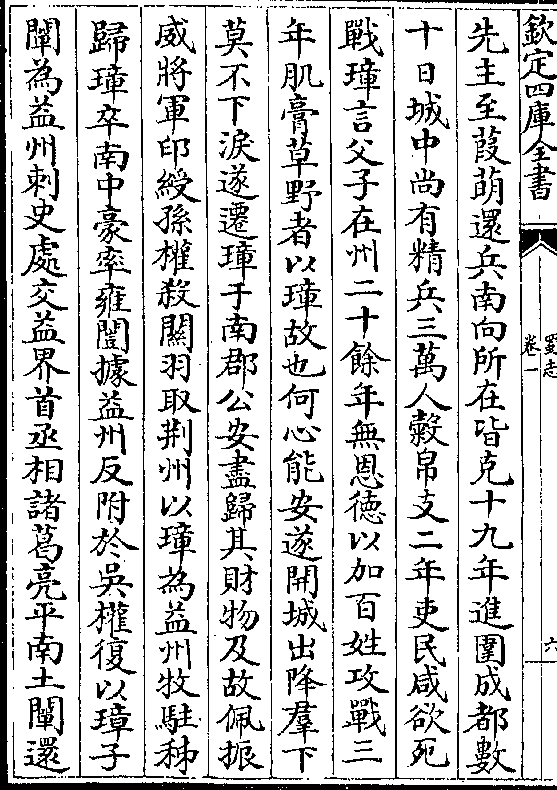 欽定四庫全書
蜀志
卷一
六
先主至葭萌還兵南向所在皆克十九年進圍成都數
十日城中尚有精兵三萬人穀帛支二年吏民咸欲死
戰璋言父子在州二十餘年無恩德以加百姓攻戰三
年肌膏草野者以璋故也何心能安遂開城出降羣下
莫不下淚遂遷璋于南郡公安盡歸其財物及故佩振
威將軍印綬孫權殺關羽取荆州以璋為益州牧駐秭
歸璋卒南中豪率雍闓據益州反附於吳權復以璋子
闡為益州刺史處交益界首丞相諸葛亮平南土闡還